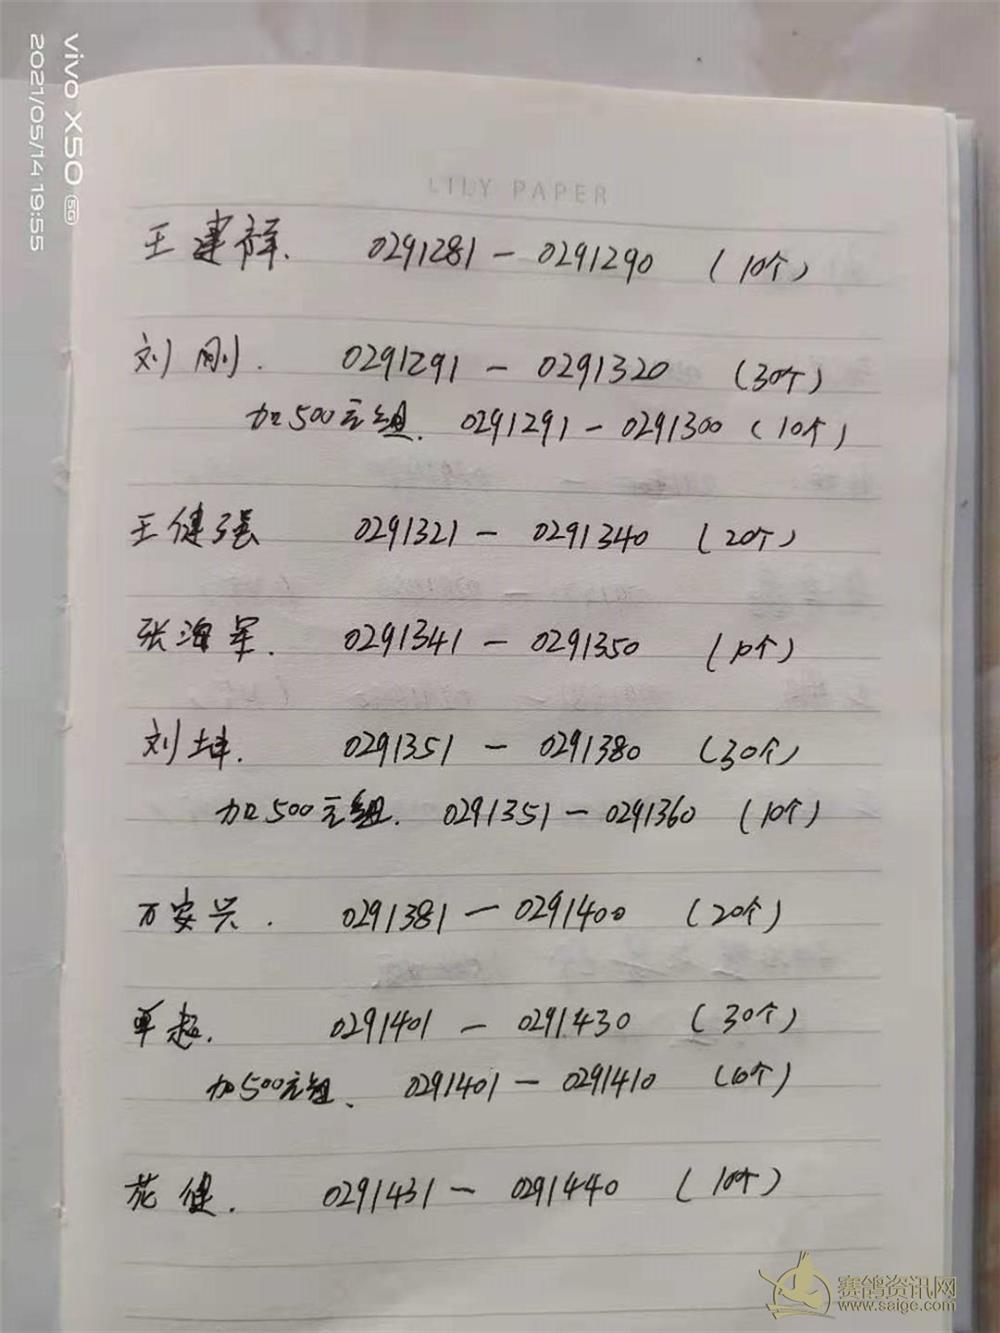 vivo X50 5G
2021/05/14 19:55
LILY PAPER
王建群. 0291281 — 0291290 (10个)
刘刚. 0291291 — 0291320 (30个)
加500元组. 0291291 — 0291300 (10个)
王健强 0291321 — 0291340 (20个)
张海军. 0291341 — 0291350 (10个)
刘坤. 0291351 — 0291380 (30个)
加500元组. 0291351 — 0291360 (10个)
万安兴. 0291381 — 0291400 (20个)
单超. 0291401 — 0291430 (30个)
加500元组、 0291401 — 0291410 (10个)
花健. 0291431 — 0291440 (10个)
赛鸽资讯网
www.saige.com